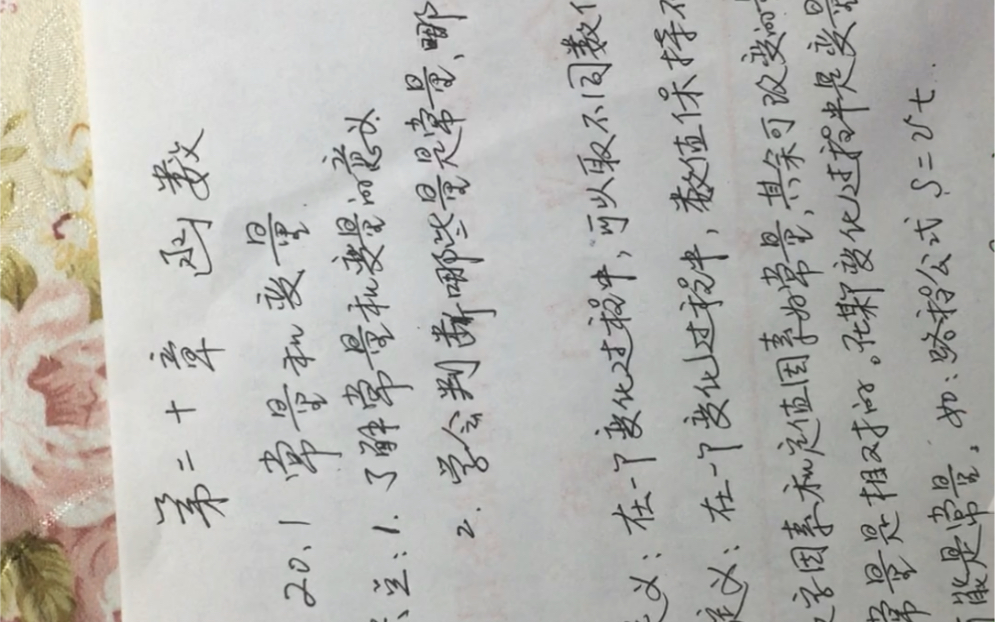 第二十章 函数
20.1 常量和变量
1. 了解常量和变量的意义
2. 学会判断哪些量是常量、哪
定义：在一个变化过程中，可以取不同数
定义：在一个变化过程中，数值保持不
字因素和定值因素为常量，其余可改变的
常量是相对的。在某变化过程中是变量
能是常量。如：路程公式 S=vt.